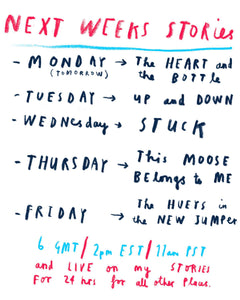 NEXT WEEKS STORIES
- MONDAY → The HEART and
(TOMORROW) the BOTTLE
- TUESDAY → UP and DOWN
- WEDNesday → STUCK
- THURSDAY → This MOOSE
Belongs to ME
- FRIDAY → The HUEYS in
the NEW SUMPER
6 GMT / 2pm EST / 11am PST
and LIVE on my STORIES
FOR 24 hrs for all other places.